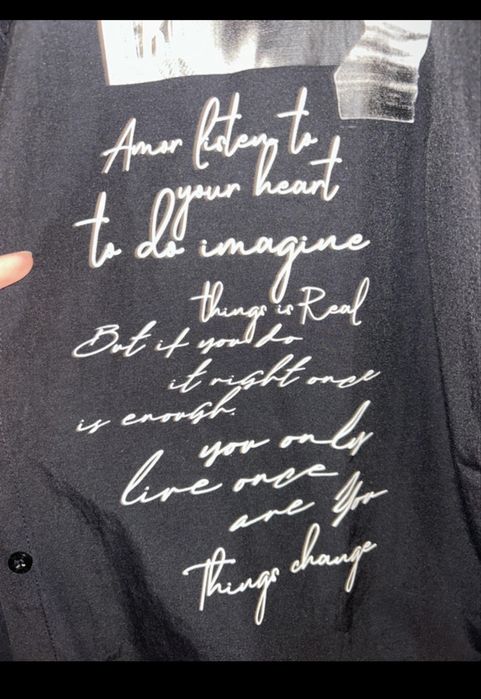 Amor listen to
your heart
to do imagine
things is Real
But if you do
it right once
is enough.
you only
live once
are You
Things change